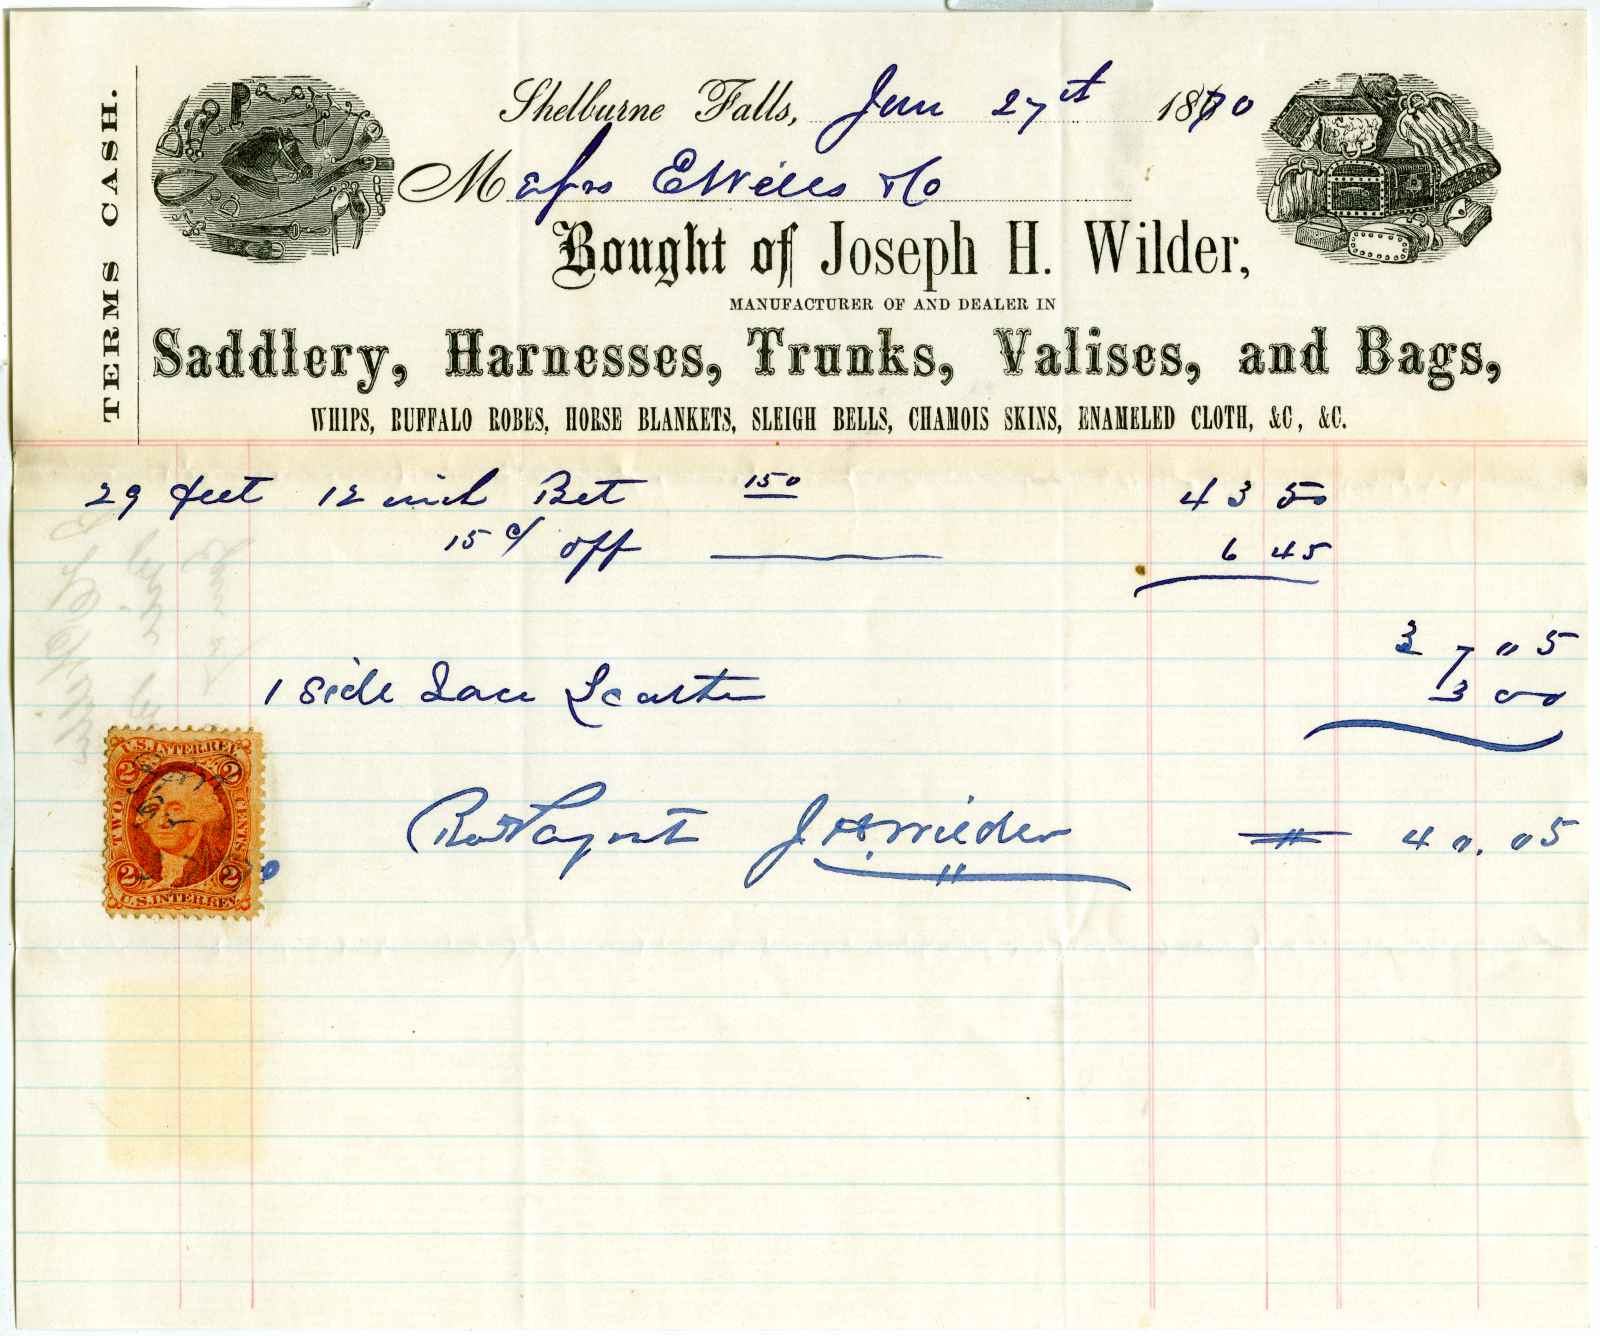 TERMS CASH.
Shelburne Falls, Jan 27th 1870
Messrs E Wells & Co
Bought of Joseph H. Wilder,
MANUFACTURER OF AND DEALER IN
Saddlery, Harnesses, Trunks, Valises, and Bags,
WHIPS, BUFFALO ROBES, HORSE BLANKETS, SLEIGH BELLS, CHAMOIS SKINS, ENAMELED CLOTH, &C, &C.
29 feet 12 inch Belt 150 43 50
15 % off 6 45
37 05
1 Side Lace Leather 3 00
Rec'd Payment J. H. Wilder 40.05
U.S. INTER. REV.
2 2
TWO CENTS
2 2
U.S. INTER. REV.